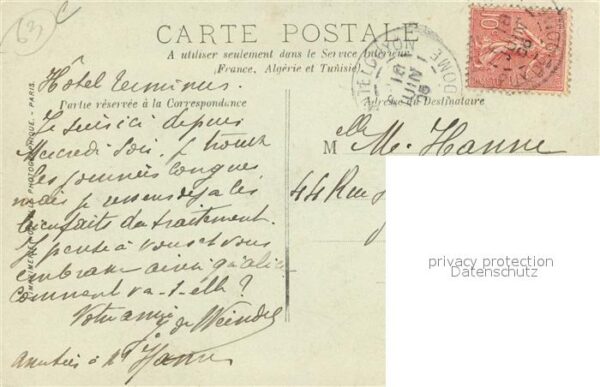 63
CARTE POSTALE
A utiliser seulement dans le Service Intérieur
(France, Algérie et Tunisie)
Partie réservée à la Correspondance
Adresse du Destinataire
Hôtel Terminus.
Je suis ici depuis
Mercredi soir. Je trouve
les journées longues
mais je ressens déjà les
bienfaits du traitement.
Je pense à vous et vous
embrasse ainsi qu'Alice
comment va-t-elle ?
Votre amie
de Weindel
amitiés à Mr Hanne
M lle M. Hanne
44 Rue
10
DOME
JUIN
IMPRIMERIE PHOTOGRAPHIQUE. - PARIS.
privacy protection
Datenschutz